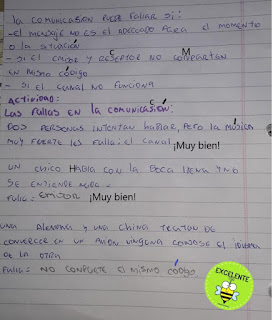 la COMUNICASION PUEDE FALLAR SI:
-El MENSAJE NO ES El ADECUADO PARA El MOMENTO
O la SITUACIÓN C M
- SI El EMISOR Y RESEPTOR NO COMPARTEN
EN MISMO CÓDIGO
- SI El CANAL NO FUNCIONA
Actividad: C
Las fallas EN la COMUNICASIÓN:
DOS PERSONAS INTENTAN HABLAR, PERO la MÚSICA
MUY FUERTE les falla: el canal ¡Muy bien!
UN CHICO HABLA CON LA BOCA LLENA Y NO
SE ENTIENDE NADA -
Falla: EMISOR ¡Muy bien!
UNA ALEMANA Y UNA CHINA TRATAN DE
CONVERCER EN UN AVIÓN NINGUNA CONOSE El IDIOMA
DE LA OTRA
Falla: NO COMPARTE El MISMO CÓDIGO
EXCELENTE